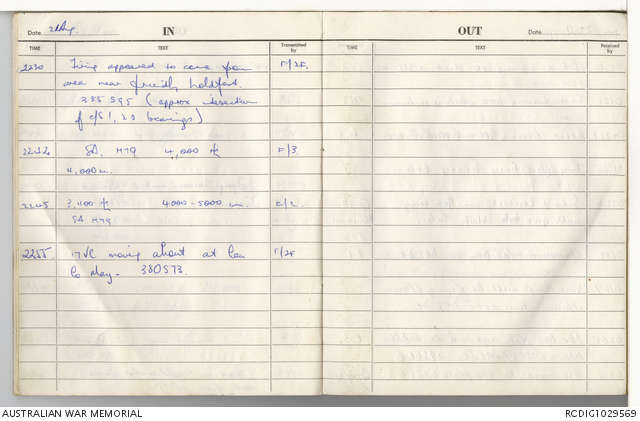 Date 21 Aug. IN
TIME TEXT Transmitted by
2230 Firing appeared to come from F/2F.
area near friendly holdfast.
355 595 (approx intersection
of c/s 1, 23 bearings)
SA, H79 4,000 ft F/3
4,000 m.
2245 3,400 ft 4000-5000 m.
SA H79
2255. VC moving about at
380573.
OUT Date
TIME TEXT Received by
AUSTRALIAN WAR MEMORIAL RCDIG1029569